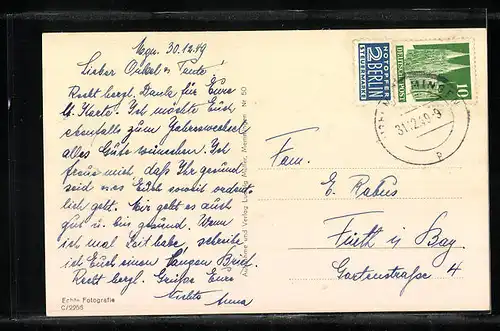 Mgn. 30.12.49
Lieber Onkel u. Tante
Recht herzl. Dank für Eure
lb. Karte. Ich möchte Euch
ebenfalls zum Jahreswechsel
alles Gute wünschen. Ich
freue mich, daß Ihr gesund
seid u. es Euch soweit ordent-
lich geht. Mir geht es auch
gut u. bin gesund. Wenn
ich mal Zeit habe, schreibe
ich Euch einen langen Brief.
Recht herzl. Grüße Eure
Nichte Anna
Echte Fotografie
C/2256
Aufnahme und Verlag Ludwig Mayer, Memmingen Nr 50
NOTOPFER
2 BERLIN
STEUERMARKE
DEUTSCHE POST
10
MEMMINGEN
31.12.49-9
Fam.
E. Rabus
Fürth i/ Bay.
Gartenstraße 4